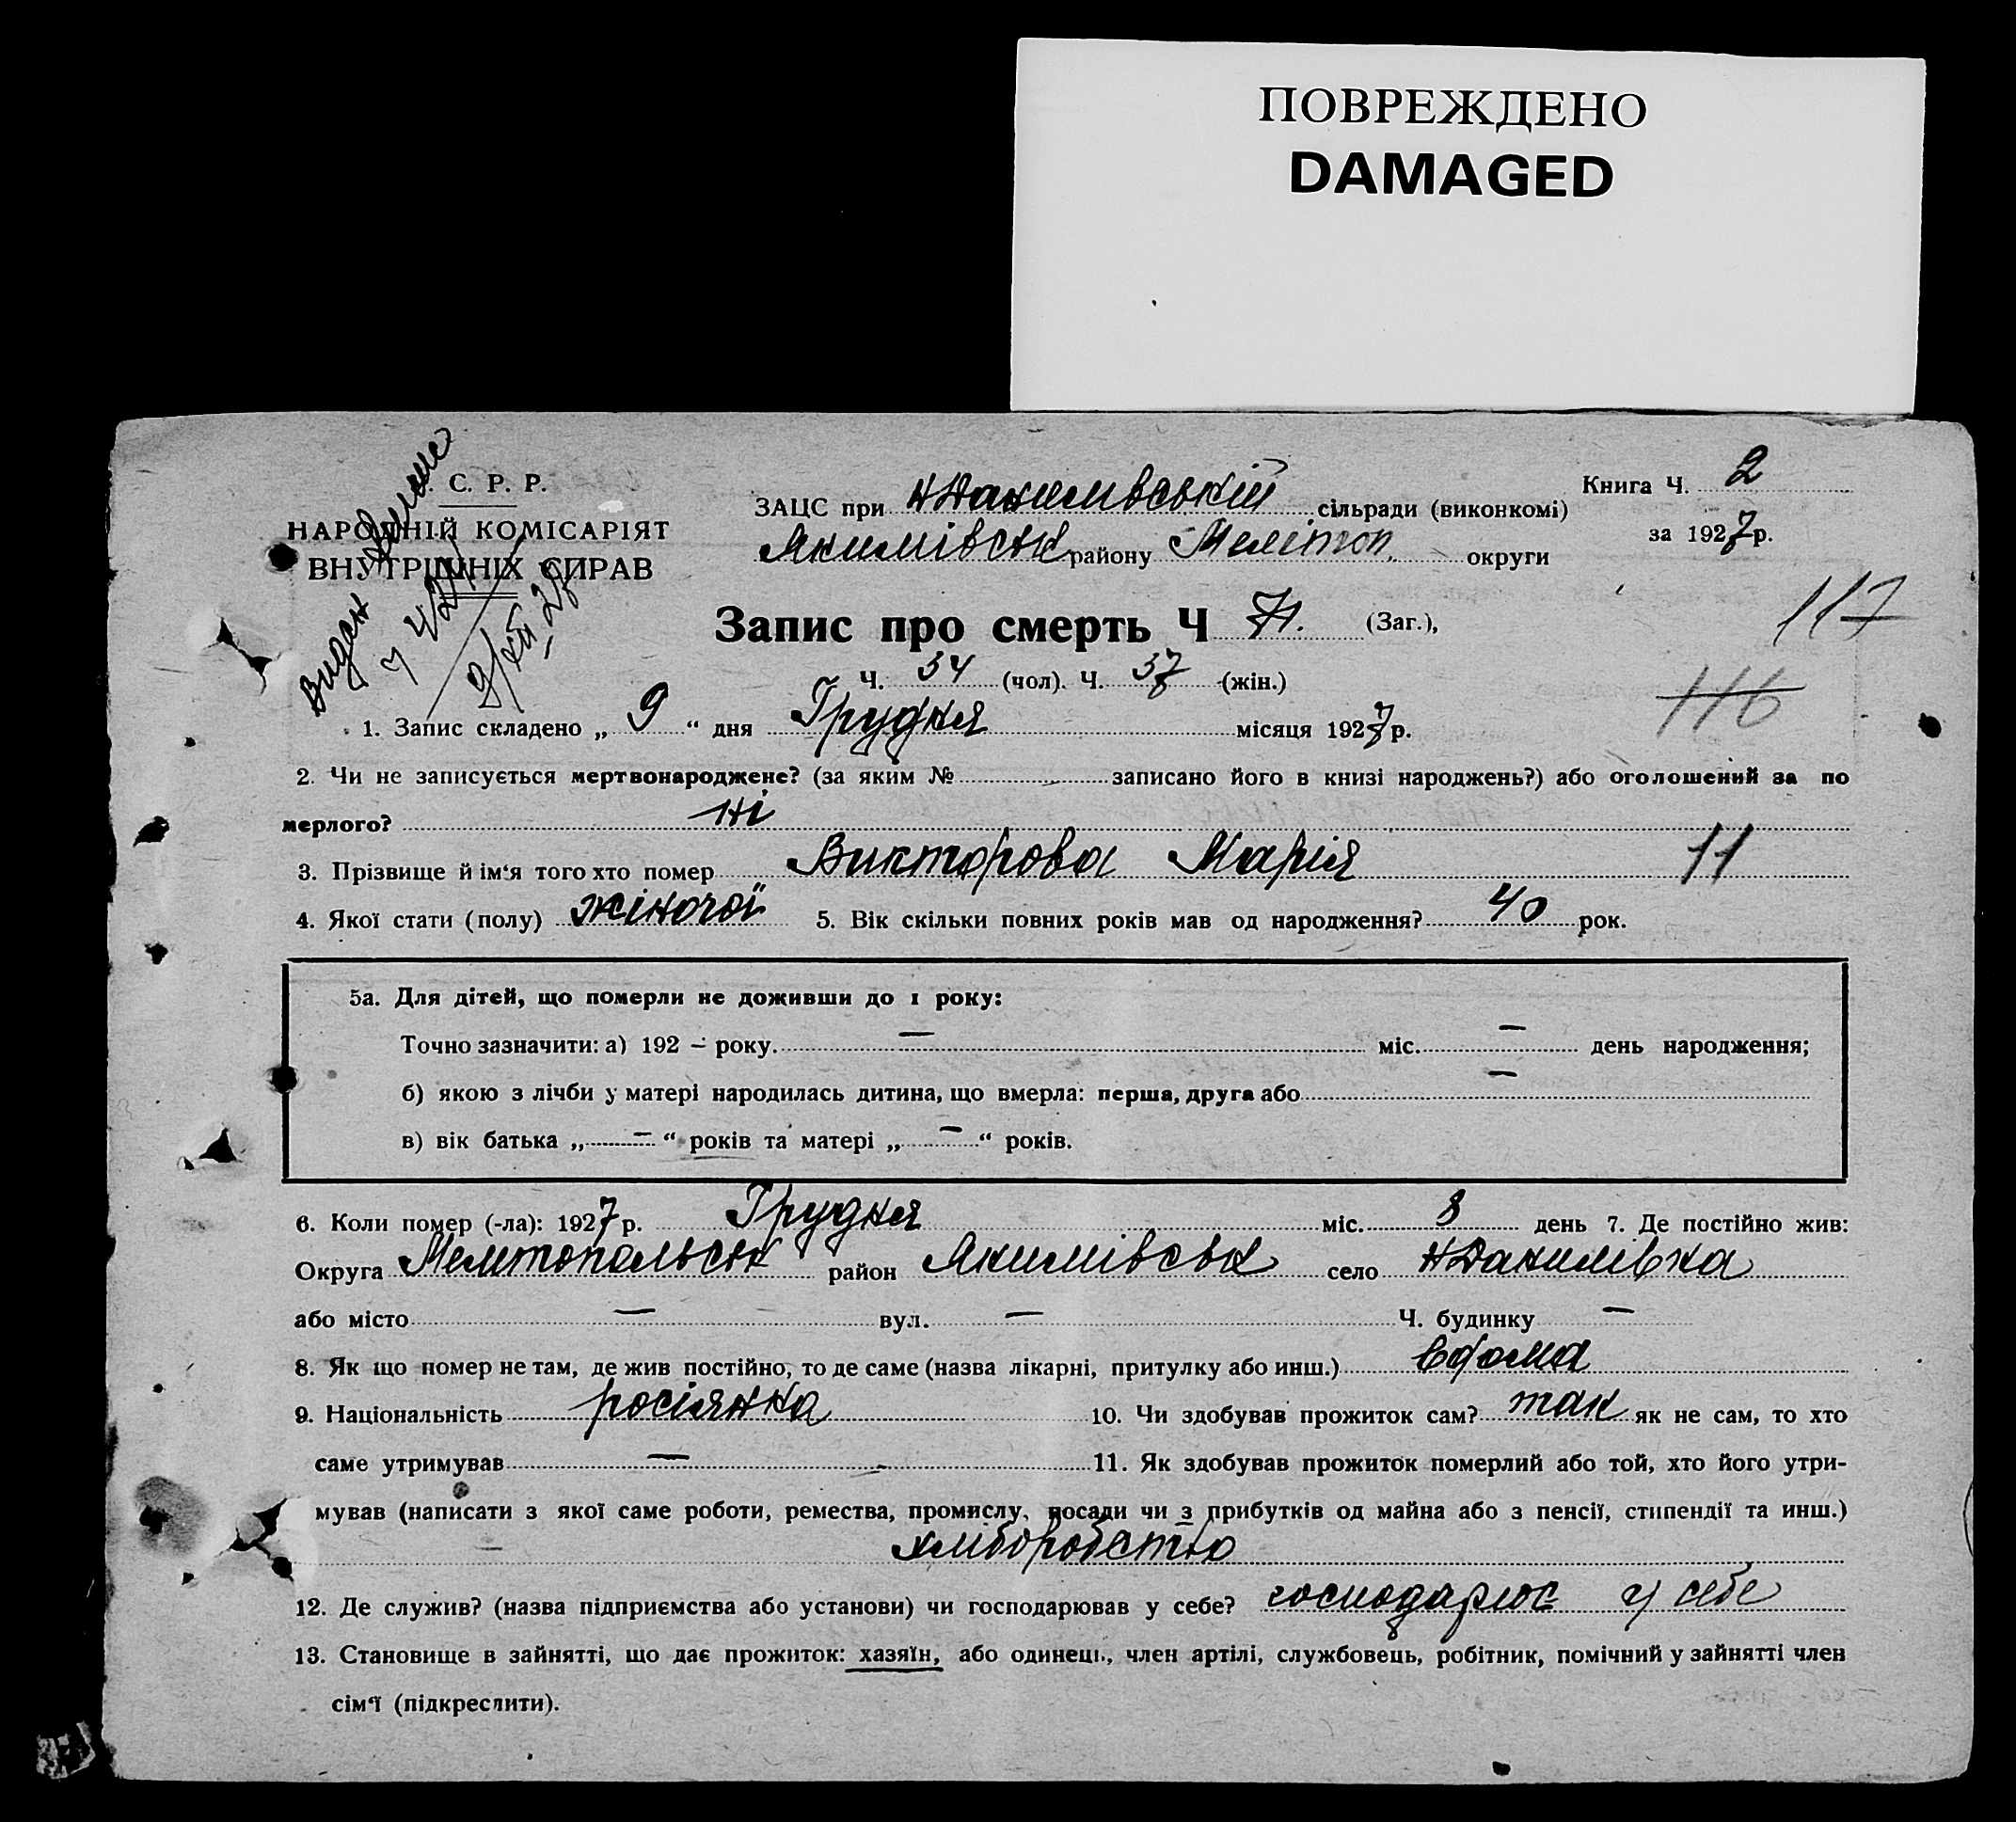 ПОВРЕЖДЕНО
DAMAGED
С. Р. Р.
НАРОДНІЙ КОМІСАРІЯТ
ВНУТРІШНІХ СПРАВ
Видан
ЗАЦС при НДанилівській сільради (виконкомі)
Якимівськ району Мелітоп. округи
Книга Ч. 2
за 1927 р.
Запис про смерть Ч 71. (Заг.),
Ч. 34 (чол). Ч. 37 (жін.)
117
116
1. Запис складено „ 9 “ дня Грудня місяця 1927 р.
2. Чи не записується мертвонароджене? (за яким № записано його в книзі народжень?) або оголошений за по
мерлого? ні
3. Прізвище й ім‘я того хто помер Викторова Марія 11
4. Якої стати (полу) жіночої 5. Вік скільки повних років мав од народження? 40 рок.
5а. Для дітей, що померли не доживши до 1 року:
Точно зазначити: а) 192 – року. — міс. — день народження;
б) якою з лічби у матері народилась дитина, що вмерла: перша, друга або —
в) вік батька „ — “ років та матері „ — “ років.
6. Коли помер (-ла): 1927 р. Грудня міс. 8 день 7. Де постійно жив:
Округа Мелітопольськ район Якимівськ село НДанилівка
або місто — вул. — Ч. будинку —
8. Як що помер не там, де жив постійно, то де саме (назва лікарні, притулку або инш.) вдома
9. Національність росіянка 10. Чи здобував прожиток сам? так як не сам, то хто
саме утримував — 11. Як здобував прожиток померлий або той, хто його утри-
мував (написати з якої саме роботи, ремества, промислу, посади чи з прибутків од майна або з пенсії, стипендії та инш.)
хліборобство
12. Де служив? (назва підприємства або установи) чи господарював у себе? господарює у себе
13. Становище в зайнятті, що дає прожиток: хазяїн, або одинець, член артілі, службовець, робітник, помічний у зайнятті член
сім‘ї (підкреслити).